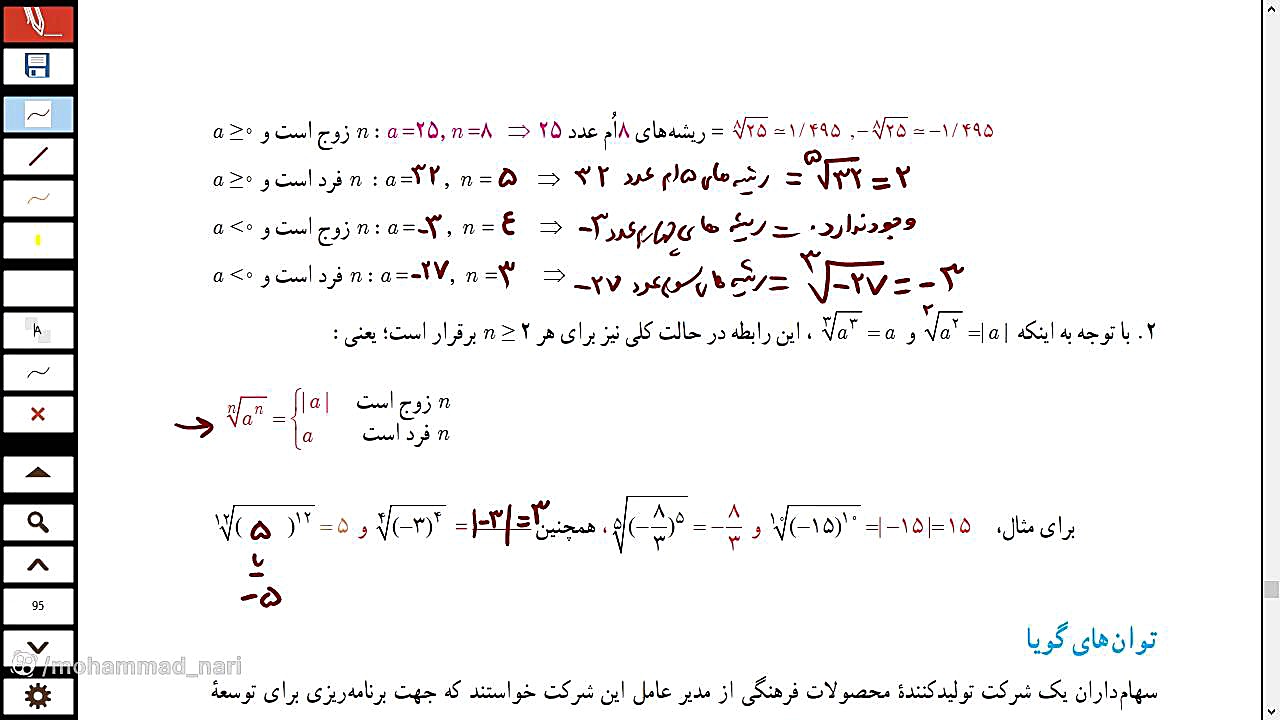 a ≥ ۰ و زوج است n : a = ۲۵, n = ۸ ⇒ ۲۵ ریشه‌های ۸اُم عدد = ⁸√۲۵ ≃ ۱/۴۹۵ , −⁸√۲۵ ≃ −۱/۴۹۵
a ≥ ۰ و فرد است n : a = ۳۲, n = ۵ ⇒ ریشه های ۵ام عدد ۳۲ = ⁵√۳۲ = ۲
a < ۰ و زوج است n : a = −۳, n = ۴ ⇒ ریشه های چهارم عدد −۳ = وجود ندارد.
a < ۰ و فرد است n : a = −۲۷, n = ۳ ⇒ ریشه های سوم عدد −۲۷ = ³√−۲۷ = −۳
۲. با توجه به اینکه ²√a² = |a| و ³√a³ = a ، این رابطه در حالت کلی نیز برای هر n ≥ ۲ برقرار است؛ یعنی :
ⁿ√aⁿ = { |a| n زوج است
a n فرد است
برای مثال، ¹⁰√(−۱۵)¹⁰ = |−۱۵| = ۱۵ و ⁵√(−۸/۳)⁵ = −۸/۳ ، همچنین ⁴√(−۳)⁴ = |−۳| = ۳ و ¹²√(۵)¹² = ۵
یا
−۵
توان‌های گویا
سهام‌داران یک شرکت تولیدکنندهٔ محصولات فرهنگی از مدیر عامل این شرکت خواستند که جهت برنامه‌ریزی برای توسعهٔ
A
95
/mohammad_nari